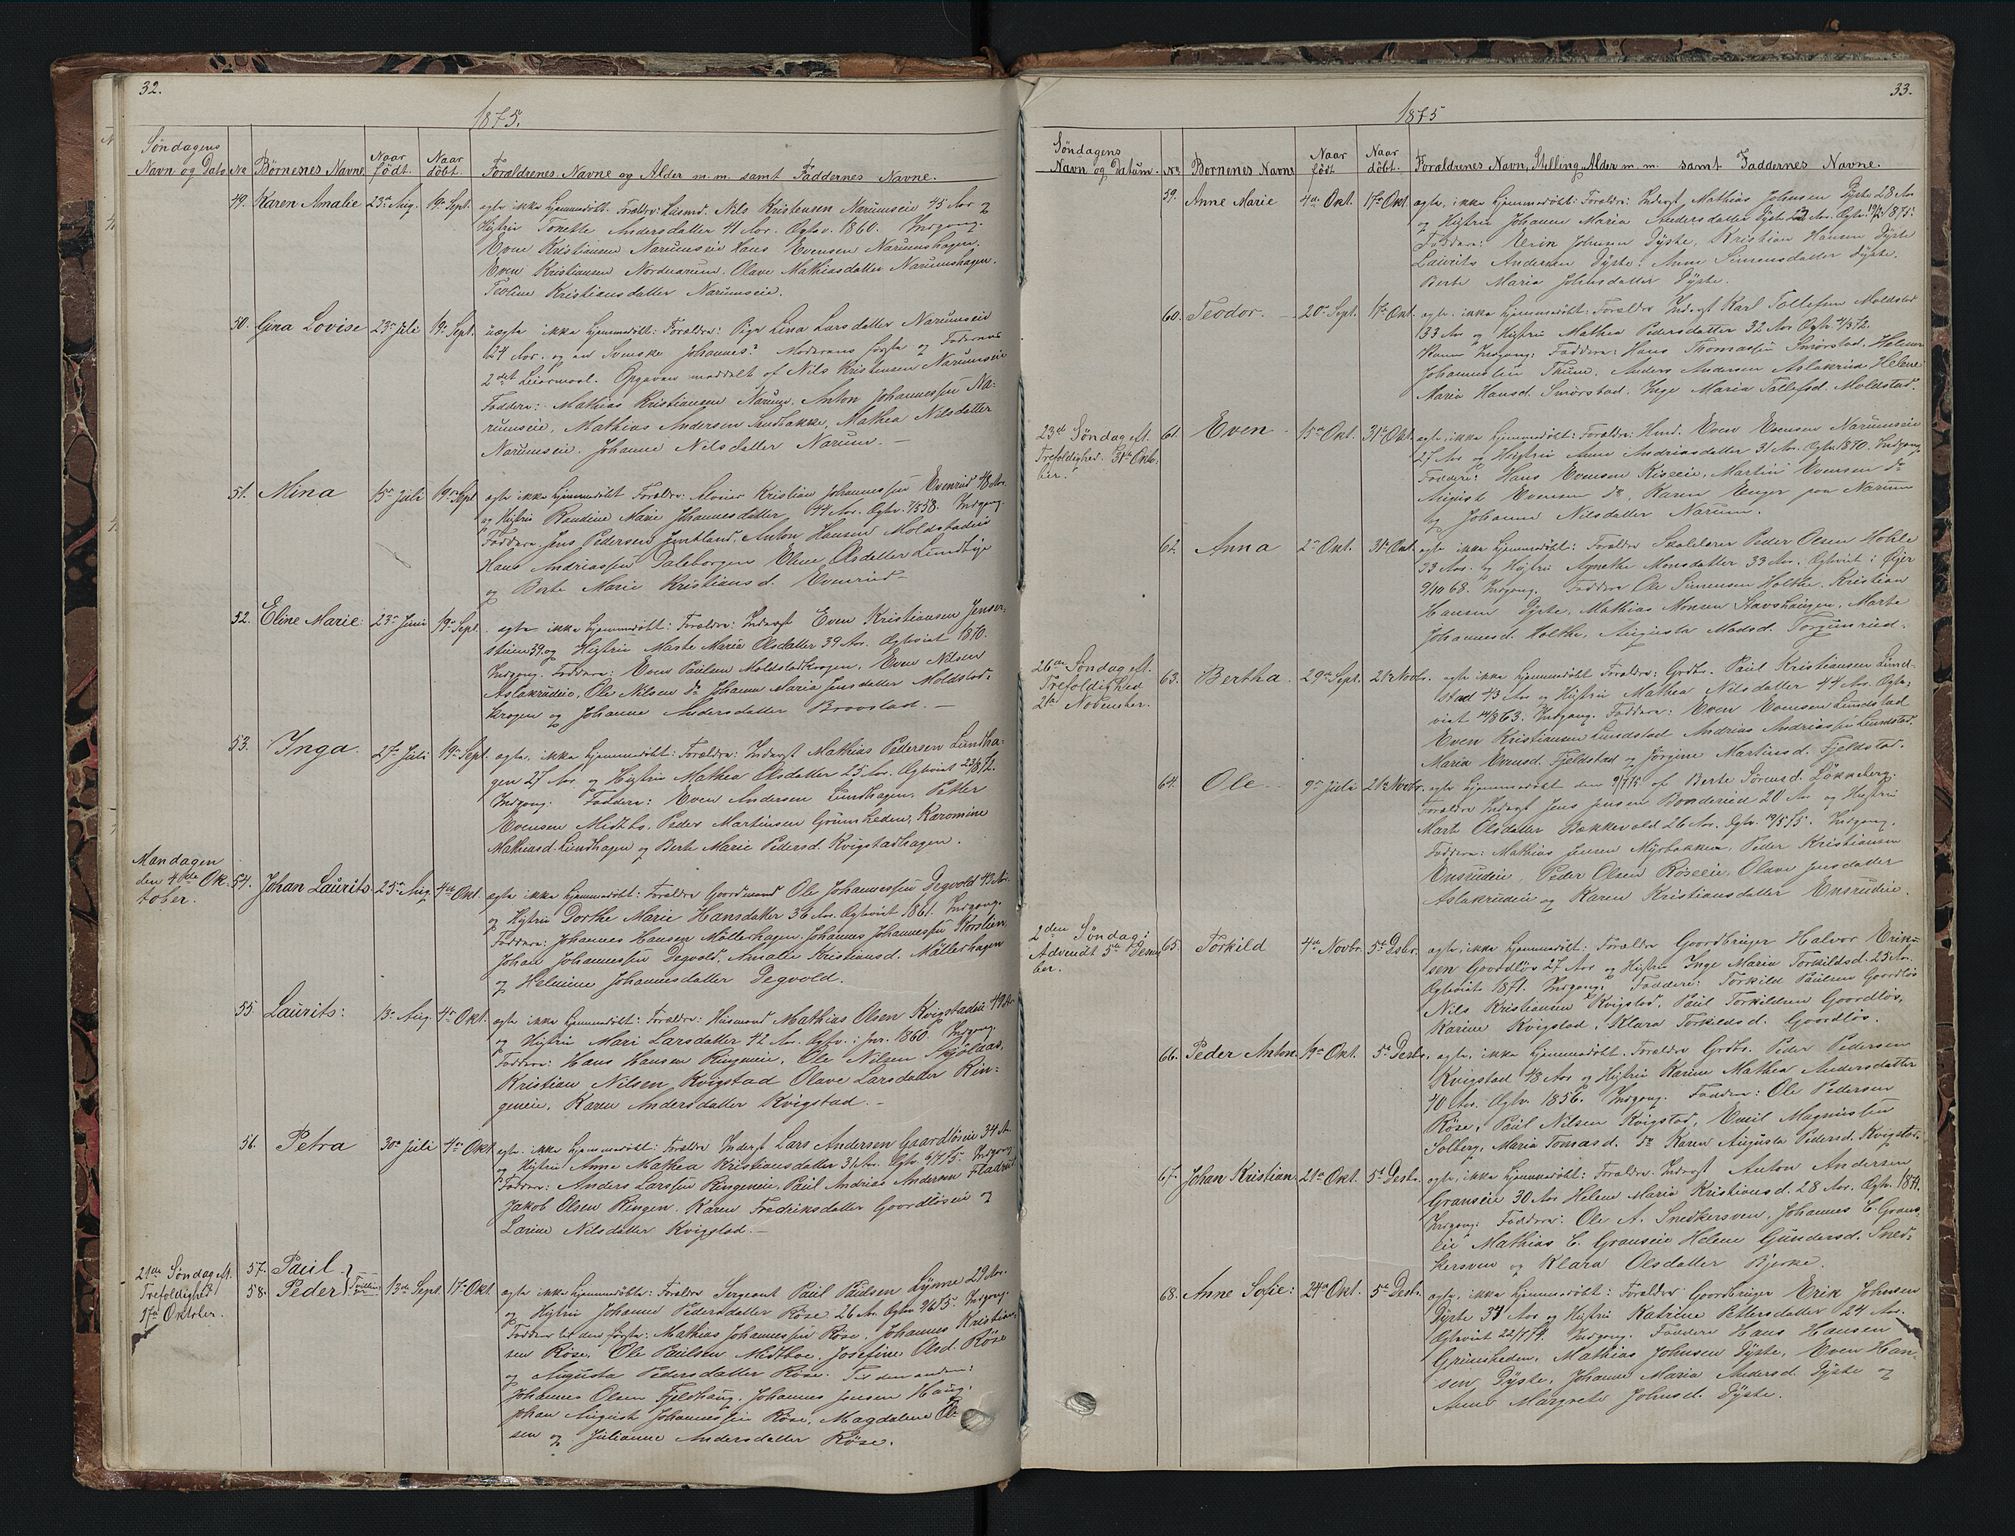 32.
1875.
Søndagens
Navn og Dato No Børnenes Navne Naar født. Naar døbt. Forældrenes Navne og Alder m. m. samt Faddernes Navne.
49. Karen Amalie 23de Aug. 19de Sept. ægte ikke hjemmedøbt. Forældre: Husmd. Nils Kristensen Narumseie 45 Aar og
Hustru Tonette Andersdatter 41 Aar. Ogtv. 1860. Indgang.
Even Kristiansen Narumseie Hans Evensen Narumshagen,
Even Kristiansen Nordnarum, Olave Mathiasdatter Narumshagen.
Teoline Kristiansdatter Narumseie.
50. Gina Lovise 23de Juli 19de Sept. uægte ikke hjemmedøbt: Forældre: Pige Lina Larsdatter Narumseie
24 Aar. og en Svenske Johannes? Moderens første og Faderens
2det Leiermaal. Opgaven meddelt af Nils Kristensen Narumseie
Faddere: Mathias Kristiansen Narum, Anton Johannessen Na-
rumseie, Mathias Andersen Sandbakke, Mathea Nilsdatter
Narumseie, Johanne Nilsdatter Narum. —
51. Nina 15de Juli 19de Sept. ægte ikke hjemmedøbt Forældre: Kristian Johannessen Evenrud 48 Aar.
og Hustru Randine Marie Johannesdatter 44 Aar. Indgang.
Faddere Jens Pedersen Jimtland, Anton Hansen Moldstadeie
Hans Andriassen Daleborgen Eline Olsdatter Lundbye
og Berte Marie Kristiansd. Evenrud —
52. Eline Marie: 23de Juni 19de Sept. ægte ikke hjemmedøbt: Forældre: Inderst Even Kristiansen Jenser-
steien 39 og Hustru Marte Maria Olsdatter 39 Aar. Ogteviet 1870.
Indgang. Faddere: Even Paulsen Moldstadkrogen, Even Nilsen
Aslakrudeie, Ole Nilsen do Johanne Maria Jensdatter Moldstad-
krogen og Johanne Andersdatter Brovstad. —
53. Inga. 27de Juli 19de Sept. ægte, ikke hjemmedøbt: Forældre: Inderst Mathias Pettersen Lundha-
gen 27 Aar og Hustru Mathea Olsdatter 25 Aar. Ogteviet 23/8 72.
Indgang. Faddere: Even Andersen Lundhagen, Petter
Evensen Midtbø, Peder Martinsen Grimsheden, Karomine
Mathiasd. Lundhagen og Berte Marie Pettersd. Kvigstadhagen.
Mandagen
den 4de Ok-
tober.
54. Johan Laurits 25de Aug. 4de Okt. ægte ikke hjemmedøbt Forældre Gaardmand Ole Johannessen Degvold 43 Aar.
og Hustru Dorthe Marie Hansdatter 36 Aar. Ogteviet 1861. Indgang.
Faddere: Johannes Hansen Møllerhagen, Johannes Johannessen Korslien
Johan Johannessen Degvold, Amalie Kristiansd. Møllerhagen
og Helmine Johannesdatter Degvold.
55. Laurits: 13de Aug. 4de Okt. ægte ikke hjemmedøbt: Forældre: Husmand Mathias Olsen Kvigstadeie 49 Aar
og Hustru Mari Larsdatter 42 Aar. Ogtv. i Jnr. 1860. Indgang.
Faddere: Hans Hansen Ringeneie, Ole Nilsen Skjølaas,
Kristian Nilsen Kvigstad Olave Larsdatter Rin-
geneie, Karen Andersdatter Kvigstad. —
56. Petra 30de Juli 4de Okt. ægte. ikke hjemmedøbt: Forældre Inderst Lars Andersen Gaardløseie 34 A.
og Hustru Anne Mathea Kristiansdatter 31 Aar. Ogtv. 6/7 75. Indgang
Faddere: Anders Larssen Ringeneie, Paul Andrias Andersen Fladrud
Jakob Olsen Ringen. Karen Fredriksdatter Goordløseie og
Larine Nilsdatter Kvigstad. —
21de Søndag eft.
Trefoldighed
17de Oktober.
57. Paul
58. Peder Tvillinger 13de Sept. 17de Okt ægte ikke hjemmedøbte: Forældre Sergeant Paul Paulsen Lynne 29 Aar.
og Hustru Johanne Pedersdatter Røse 26 Aar. Ogtv. Indgang.
Faddere til den første: Mathias Johannessen Røse, Johannes Kristian-
sen Røse, Ole Paulsen Midtboe, Josefine Olsd. Røse
og Augusta Pedersdatter Røse. Til den anden:
Johannes Olsen Fjeldhaug, Johannes Jensen Haug,
Johan August Johannessen Røse, Magdalene Ol-
sen og Julianne Andersdatter Røse.
33.
1875
Søndagens
Navn og Datum. No Bornenes Navne Naar født Naar døbt. Forældrenes Navn, Stilling, Alder m. m. samt Faddernes Navne.
59. Anne Marie 4de Okt. 17de Okt ægte, ikke hjemmedøbt: Forældre: Inderst Mathias Johnsen Dyste 28 Aar
og Hustru Johanne Maria Andersdatter Dyste Aar. Ogtv. 1875.
Faddere: Johnsen Dyste, Kristian Hansen Dyste
Laurits Andersen Dyste. Anne Simensdatter Dyste.
Berte Maria Johnsdatter Dyste.
60. Teodor. 20de Sept. 17de Okt. ægte. ikke hjemmedøbt: Forældre Inderst Karl Tollefsen Moldstad
33 Aar og Hustru Mathea Pedersdatter 32 Aar Ogtv. 4/3 72.
Indgang: Faddere: Hans Thomassen Smørstad, Helmer
Johannessen Thune, Anders Andersen Aslakrud Helene
Maria Hansd. Smørstad. Inge Maria Tollefsd. Moldstad.
23de Søndag eft.
Trefoldighed. 31te Okto-
ber.
61. Even 15de Okt. 31te Okt. ægte, ikke hjemmedøbt: Forældre: Hmd. Even Evensen Narumseie
27 Aar og Hustru Anne Andriasdatter 31 Aar. Ogtv. 1870. Indgang
Faddere: Hans Evensen Kiseeie, Martin Evensen do
August Evensen do, Karen Enger paa Narum
og Johanne Nilsdatter Narum.
62. Anna 2de Okt. 31te Okt ægte ikke hjemmedøbt: Forældre Skolelærer Peder Olsen Holthe
33 Aar. og Hustru Agnethe Monsdatter 33 Aar. Ogteviet i Øijer
9/10 68. Indgang. Faddere Ole Simensen Holthe, Kristian
Hansen Dyste, Mathias Monsen Stavshaugen, Marte
Johannesd. Holthe, Augusta Madsd. Torgunrud.
26de Søndag eft.
Trefoldighed
21de November.
63. Bertha 29de Sept. 21de Novbr. ægte ikke hjemmedøbt Forældre: Grdbr. Paul Kristiansen Lund-
stad 43 Aar og Hustru Mathea Nilsdatter 44 Aar. Ogte-
viet 14/8 63. Indgang. Faddere: Even Evensen Lundstad
Even Kristiansen Lundstad Andrias Andriassen Lundstad.
Maria Evensd. Fjeldstad og Jørgine Martinsd. Fjeldstad.
64. Ole 9de Juli 21de Novbr. ægte hjemmedøbt den 9/7 75 af Berte Sørensd. Løkkeberg:
Forældre Inderst Jens Jensen Bonderud 20 Aar og Hustru
Mart Olsdatter Bækkevold 26 Aar. Ogtv. 19/5 75. Indgang.
Faddere: Mathias Jensen Myrbakken, Peder Kristiansen
Ensrudeie, Peder Olsen Røseeie, Olave Jensdatter
Aslakrudeie og Karen Kristiansdatter Ensrudeie.
2den Søndag i
Advendt 5te Decem-
ber.
65. Torkild 4de Novbr. 5te Desbr. ægte, ikke hjemmedøbt: Forældre Goordbruger Halvor Erik-
sen Goordløs 27 Aar og Hustru Inge Maria Torkildsd. 25 Aar.
Ogteviet 1871. Indgang. Faddere: Torkild Paulsen Goordløs
Nils Kristiansen Kvigstad, Paul Torkildsen Goordløs,
Karine Kvigstad, Klara Torkildsd. Goordløs.
66. Peder Anton. 19de Okt. 5te Desbr. ægte, ikke hjemmedøbt: Forældre Grdbr. Peder Pedersen
Kvigstad 48 Aar og Hustru Karine Mathea Andersdatter
40 Aar. Ogtv. 1856. Indgang. Faddere: Ole Pedersen
Røse, Paul Nilsen Kvigstad, Emil Magnussen
Solberg, Maria Tomasd. do Karen Augusta Pedersd. Kvigstad.
67. Johan Kristian 21de Okt. 5te Desbr. ægte, ikke hjemmedøbt: Forældre Inderst Anton Andersen
Granseie 30 Aar Helene Maria Kristiansd. 28 Aar. Ogtv. 1871.
Indgang: Faddere: Ole A. Snedkersven, Johannes E. Grans-
eie Mathias E. Granseie Helene Gundersd. Sned-
kersven og Klara Olsdatter Bjerke.
68. Anne Sofie: 24de Okt. 5te Desbr. ægte, ikke hjemmedøbt: Forældre Goordbruger Erik Johnsen
Dyste 31 Aar og Hustru Katrine Pettersdatter 24 Aar.
Ogteviet 22/7 74. Indgang. Faddere Hans Hansen
Grimsheden, Mathias Johnsen Dyste, Even Han-
sen Dyste, Johanne Maria Andersd. Dyste og
Anne Margrete Johnsd. Dyste.